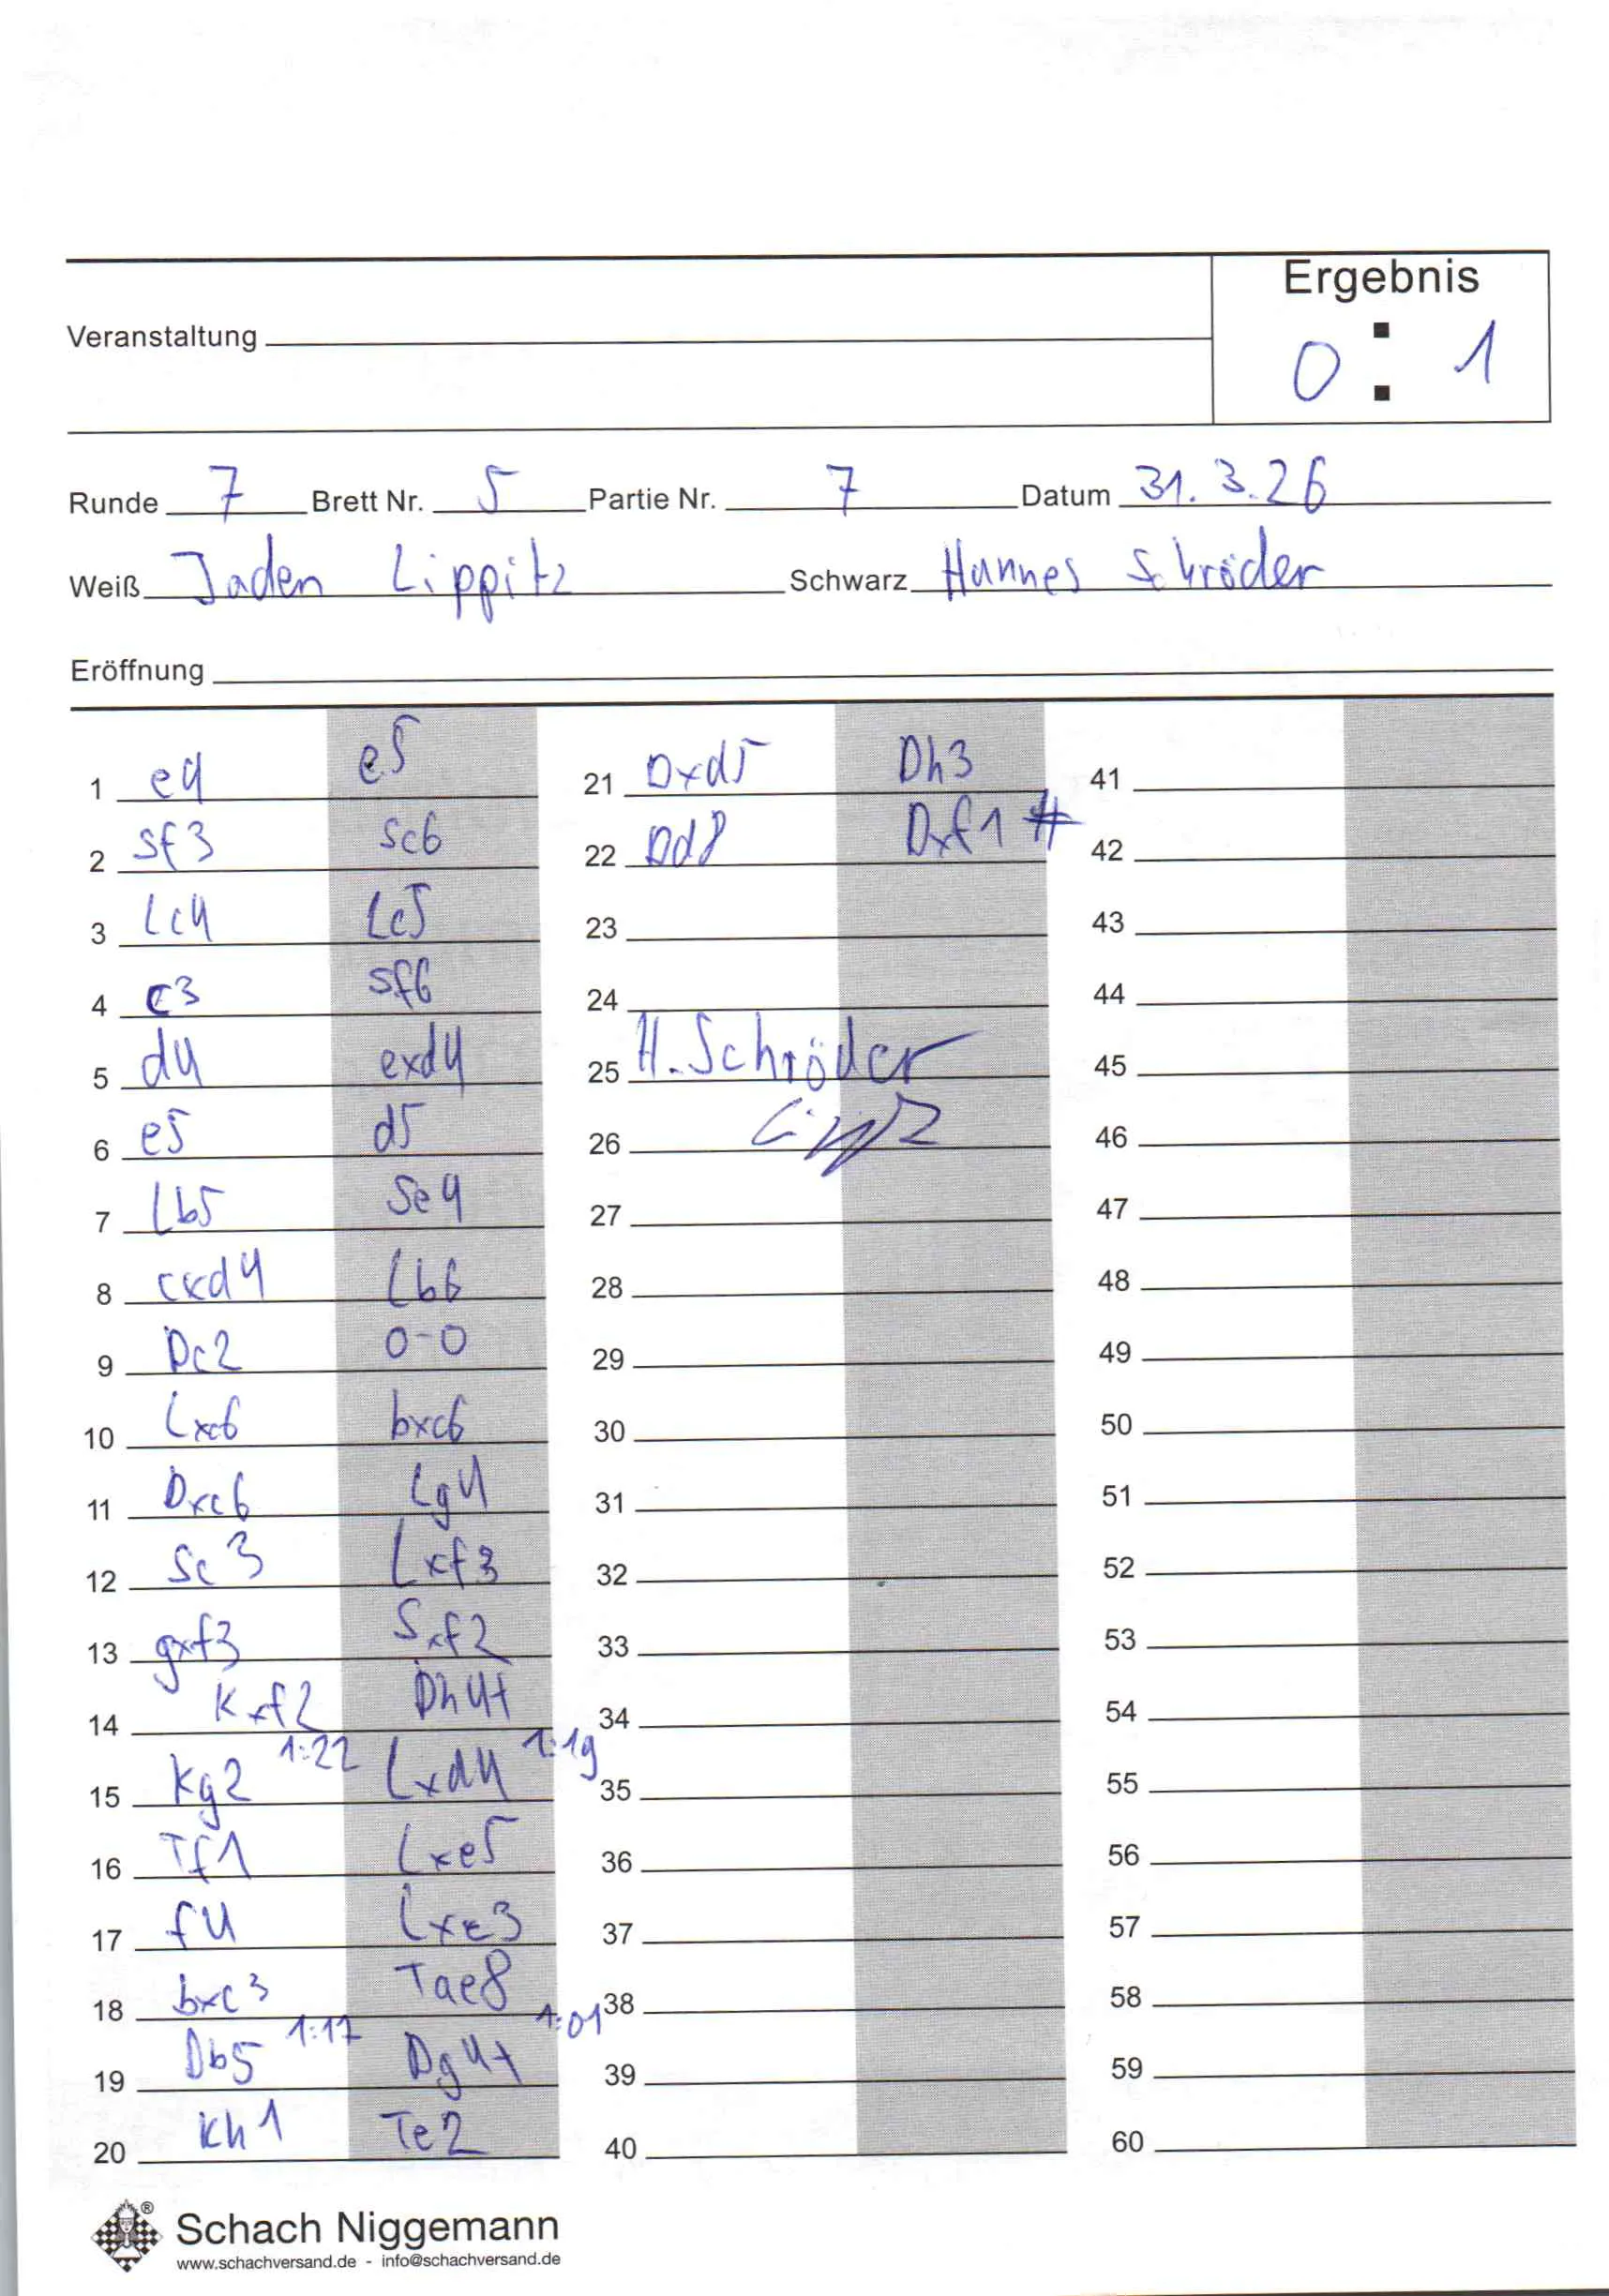 Ergebnis
Veranstaltung
0 : 1
Runde 7 Brett Nr. 5 Partie Nr. 7 Datum 31.3.26
Weiß Jaden Lippitz Schwarz Hannes Schröder
Eröffnung
1 e4 e5
2 Sf3 Sc6
3 Lc4 Lc5
4 c3 Sf6
5 d4 exd4
6 e5 d5
7 Lb5 Se4
8 cxd4 Lb6
9 Dc2 0-0
10 Lxc6 bxc6
11 Dxc6 Lg4
12 Sc3 Lxf3
13 gxf3 Sxf2
14 Kxf2 Dh4+
15 Kg2 1:22 Lxd4 1:19
16 Tf1 Lxe5
17 f4 Lxc3
18 bxc3 Tae8
19 Db5 1:17 Dg4+ 1:01
20 Kh1 Te2
21 Dxd5 Dh3
22 Dd8 Dxf1#
23
24
25 H. Schröder
26
27
28
29
30
31
32
33
34
35
36
37
38
39
40
41
42
43
44
45
46
47
48
49
50
51
52
53
54
55
56
57
58
59
60
® Schach Niggemann
www.schachversand.de - info@schachversand.de